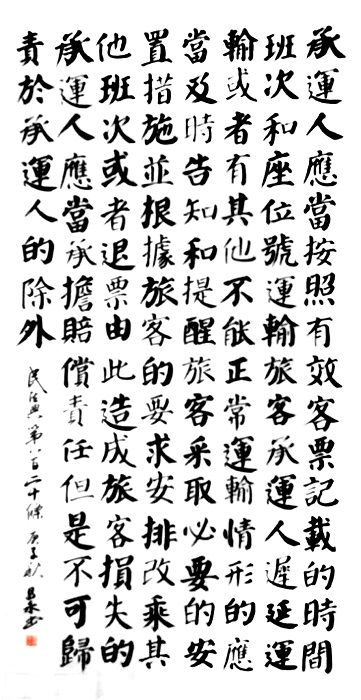 承運人應當按照有效客票記載的時間
班次和座位號運輸旅客承運人遲延運
輸或者有其他不能正常運輸情形的應
當及時告知和提醒旅客采取必要的安
置措施並根據旅客的要求安排改乘其
他班次或者退票由此造成旅客損失的
承運人應當承擔賠償責任但是不可歸
責於承運人的除外
民法典第八百二十條 庚子秋